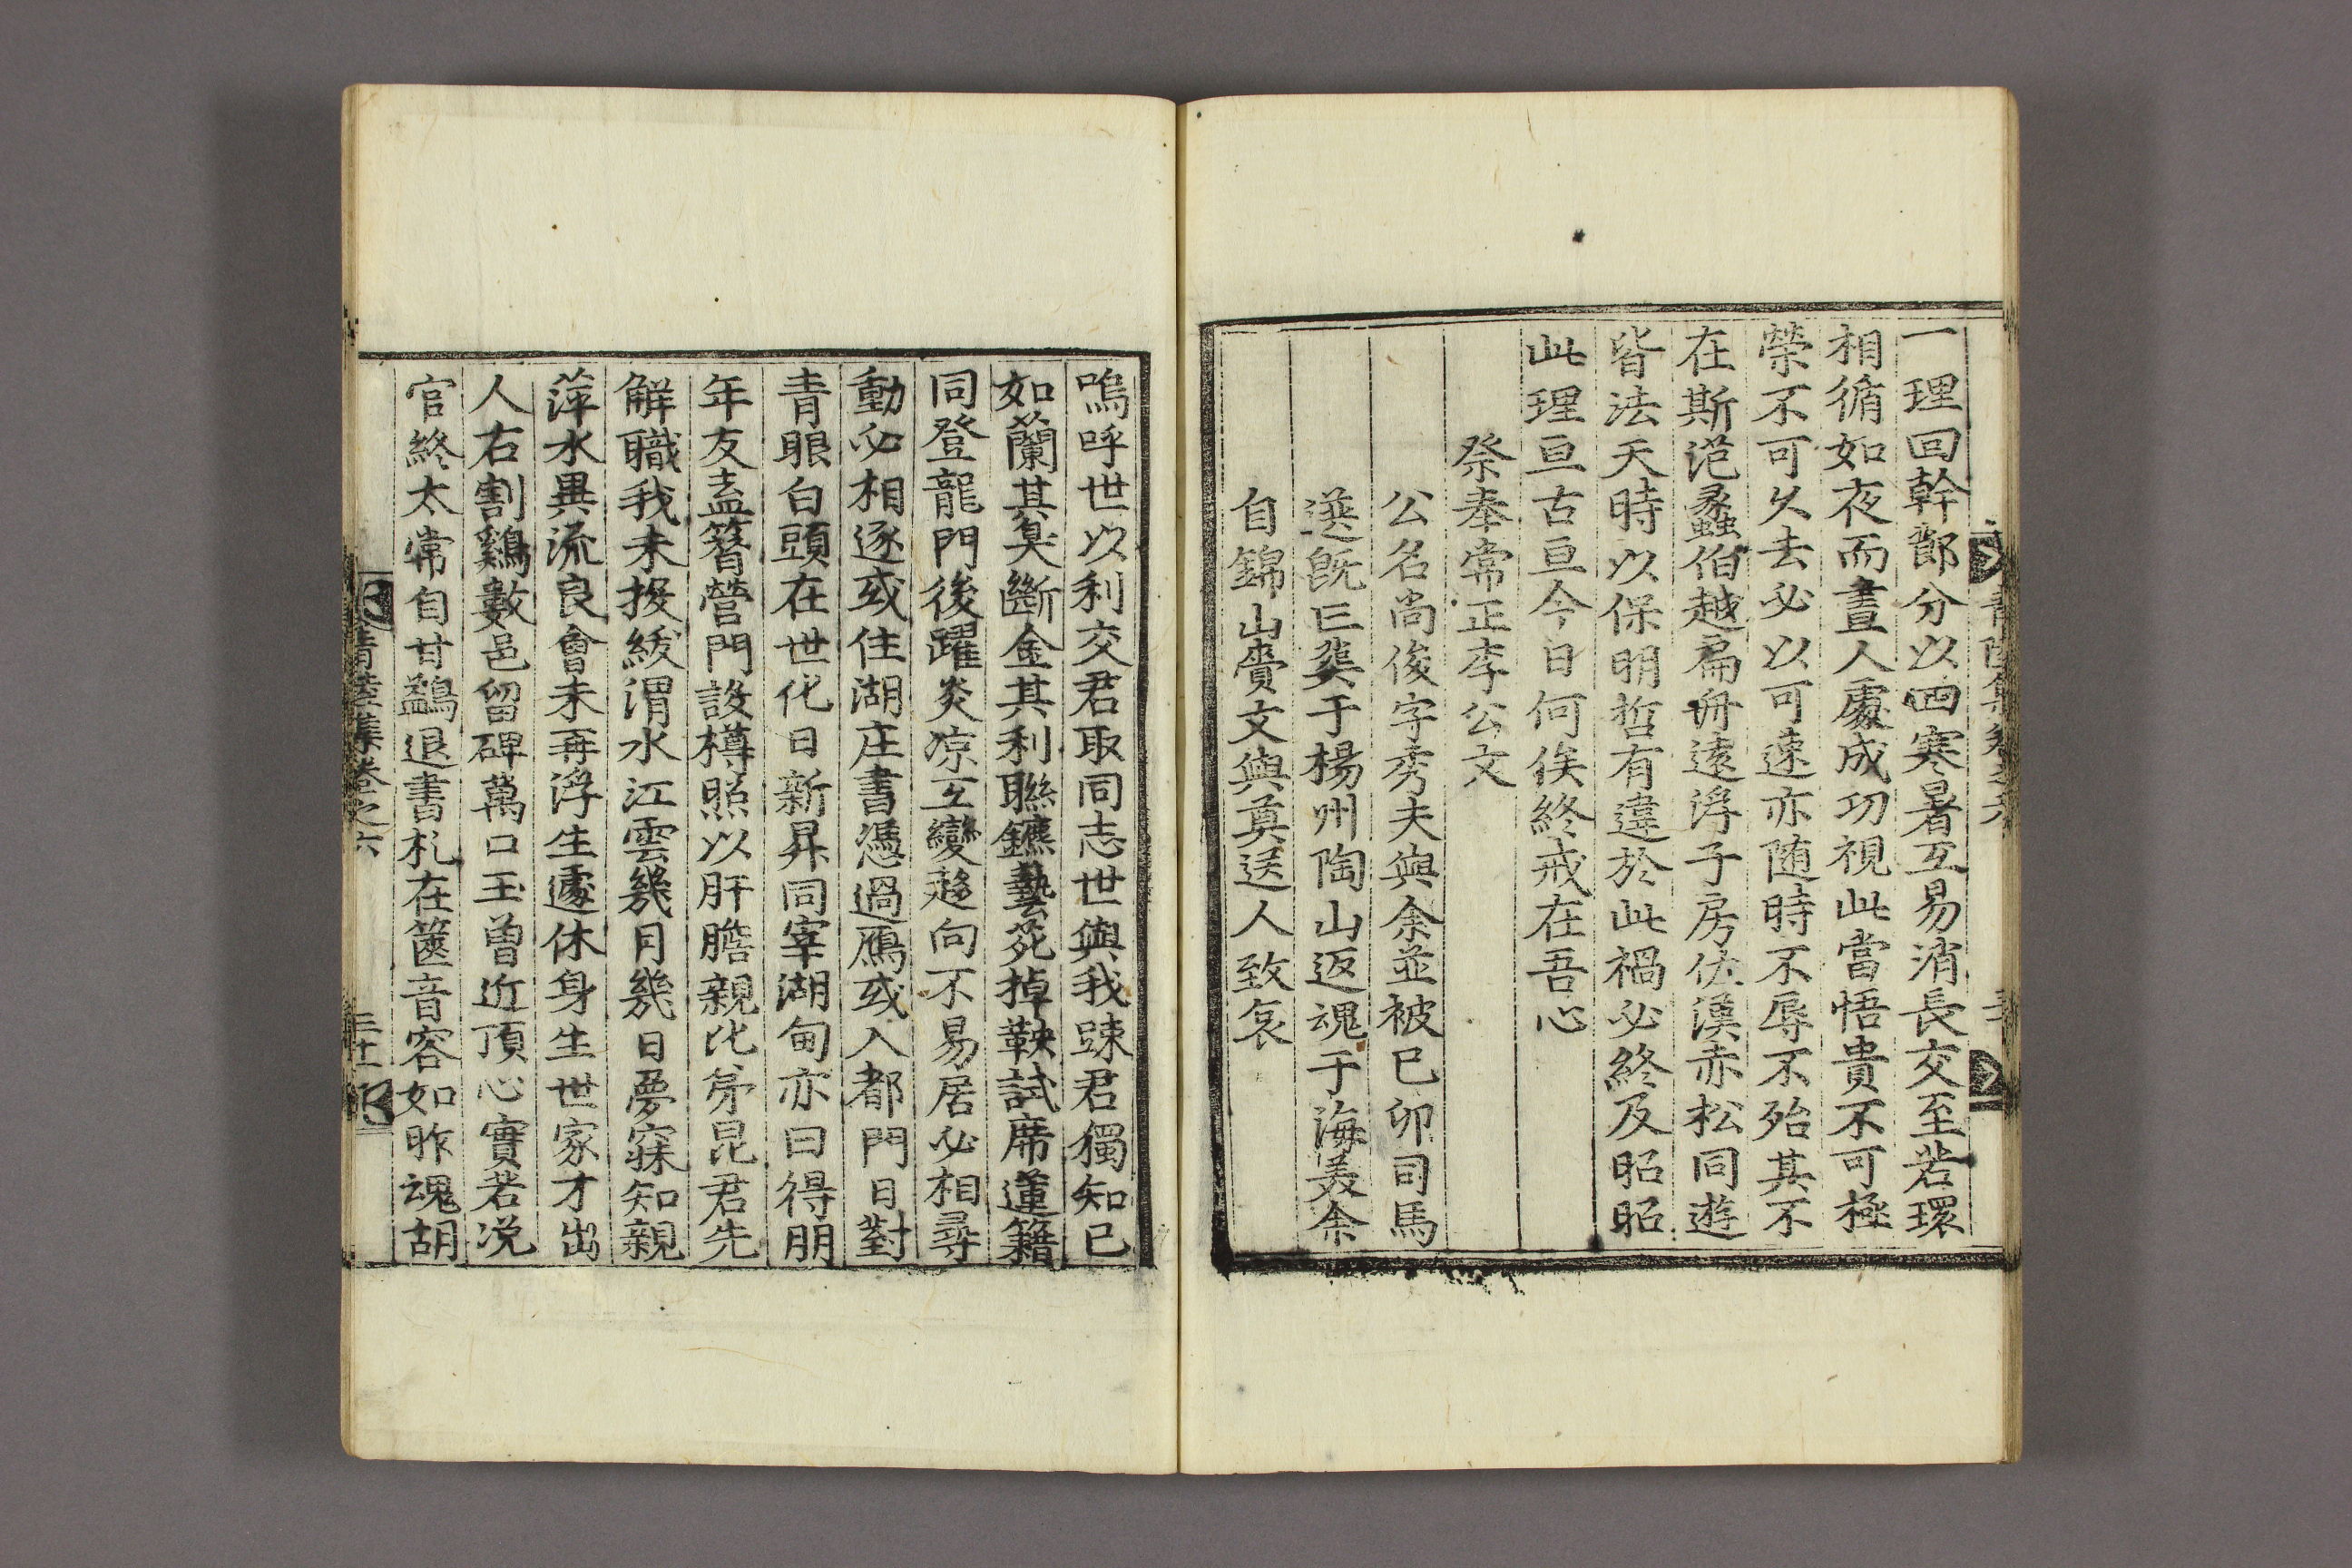 一理回斡部分以四寒暑互易消長交至若環
相循如夜而晝人處成功視此當悟貴不可極
榮不可久去必以可速亦随時不辱不殆其不
在斯范蠡伯越扁舟遠浮子房佐漢赤松同遊
皆法天時以保明哲有違於此禍必終及昭昭
此理亘古亘今日何俟終戒在吾心
祭奉常正李公文
公名尚俊字秀夫與余並被己卯司馬
選旣已葬于楊州陶山返魂于海美余
自錦山賷文與奠送人致哀
嗚呼世以利交君取同志世與我踈君獨知己
如蘭其臭斷金其利聯鑣藝苑掉鞅試席蓮籍
同登龍門後躍炎凉互變趍向不易居必相尋
動必相逐或住湖庄書憑過鴈或入都門日對
青眼白頭在世化日新昇同宰湖甸亦曰得朋
年友盍簪營門設樽照以肝膽親比弟昆君先
解職我未投綬渭水江雲幾月幾日夢寐知親
萍水異流良會未再浮生遽休身生世家才出
人右割鷄數邑留碑萬口玉曾近頂心實若浼
官終太常自甘鷁退書札在篋音容如昨魂胡
青陸集卷之六
三十一